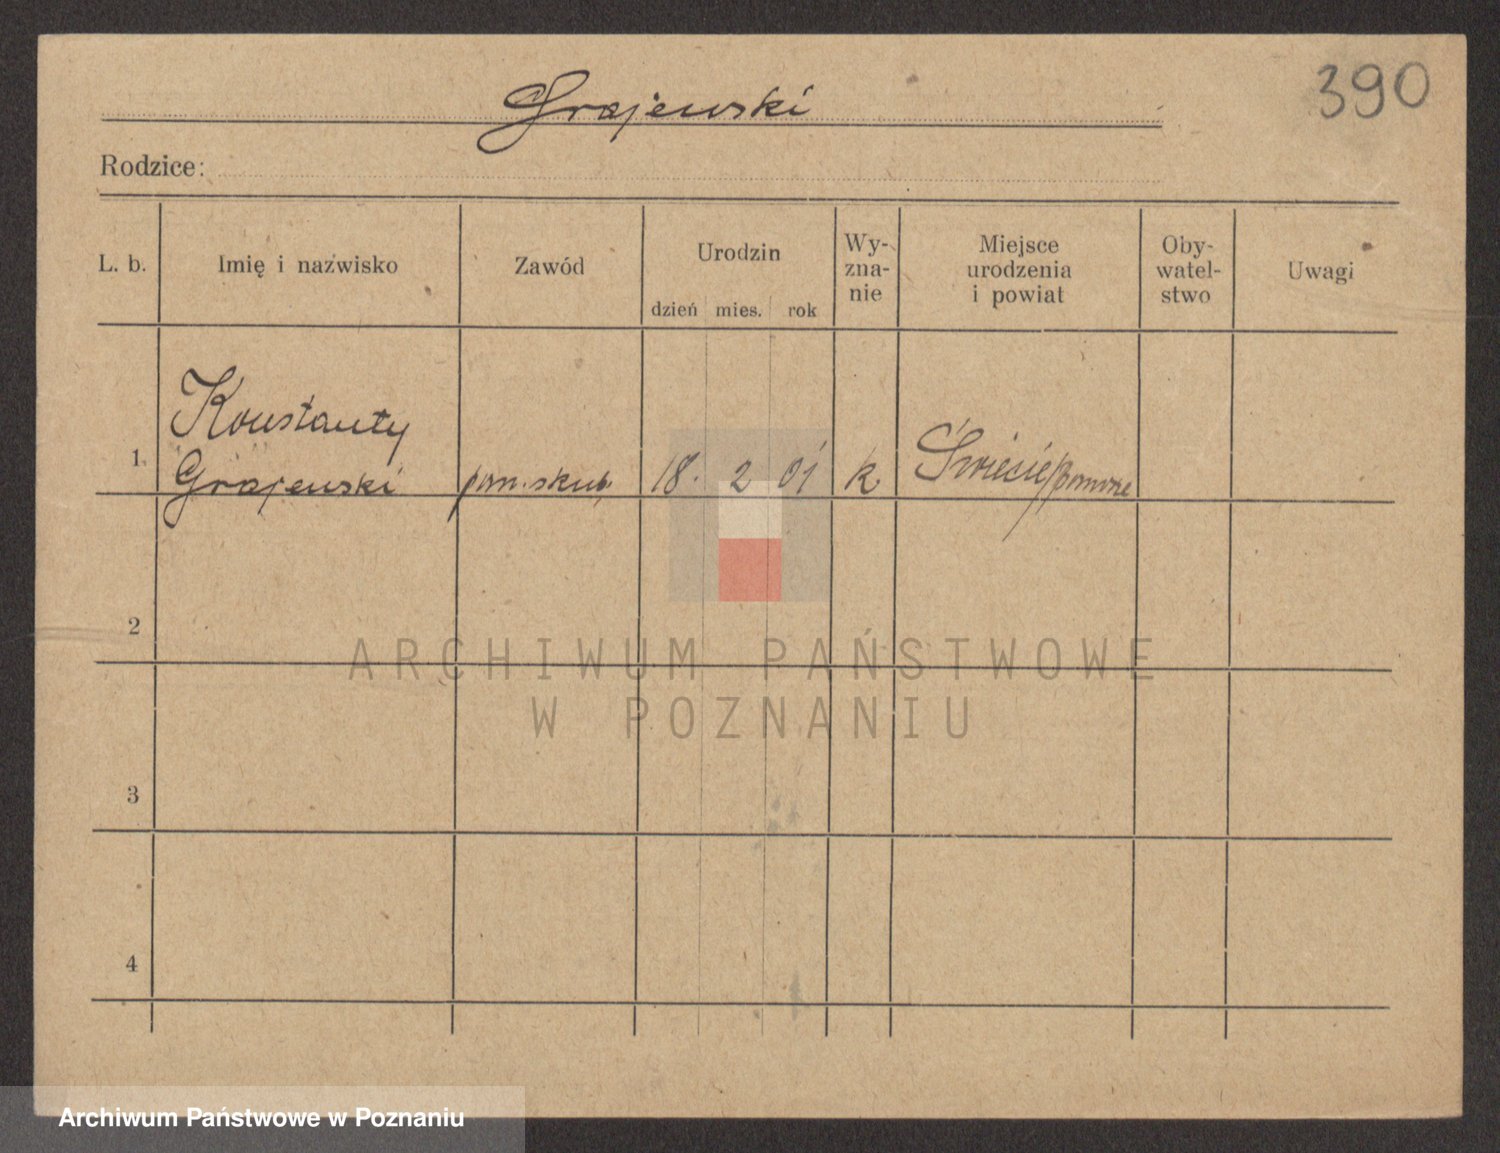 Grajewski
390
Rodzice:
L. b.
Imię i nazwisko
Zawód
Urodzin
dzień mies. rok
Wy-
zna-
nie
Miejsce
urodzenia
i powiat
Oby-
watel-
stwo
Uwagi
1.
Konstanty
Grajewski
18. 2 01
k
Świecie/Pomorze
2
3
4
ARCHIWUM PAŃSTWOWE
W POZNANIU
Archiwum Państwowe w Poznaniu